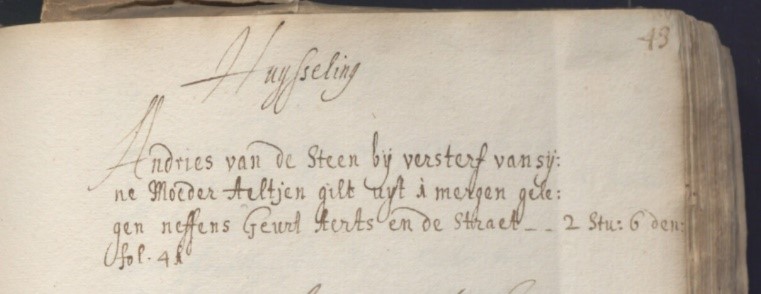 43
Huysseling
Andries van de Steen bij versterf van sij:
ne Moeder Aeltjen gilt uyt 1 mergen gele:
gen neffens Geurt Aerts en de Straet _ _ 2 Stu: 6 den:
fol. 41